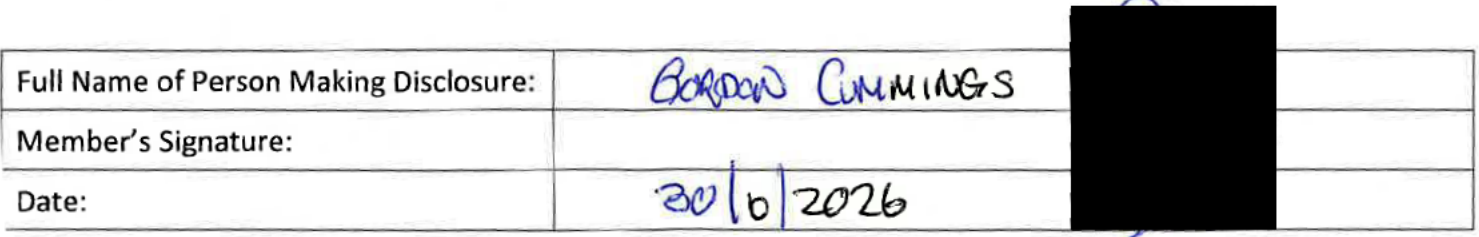 Full Name of Person Making Disclosure: GORDON CUMMINGS
Member's Signature:
Date: 30/6/2026